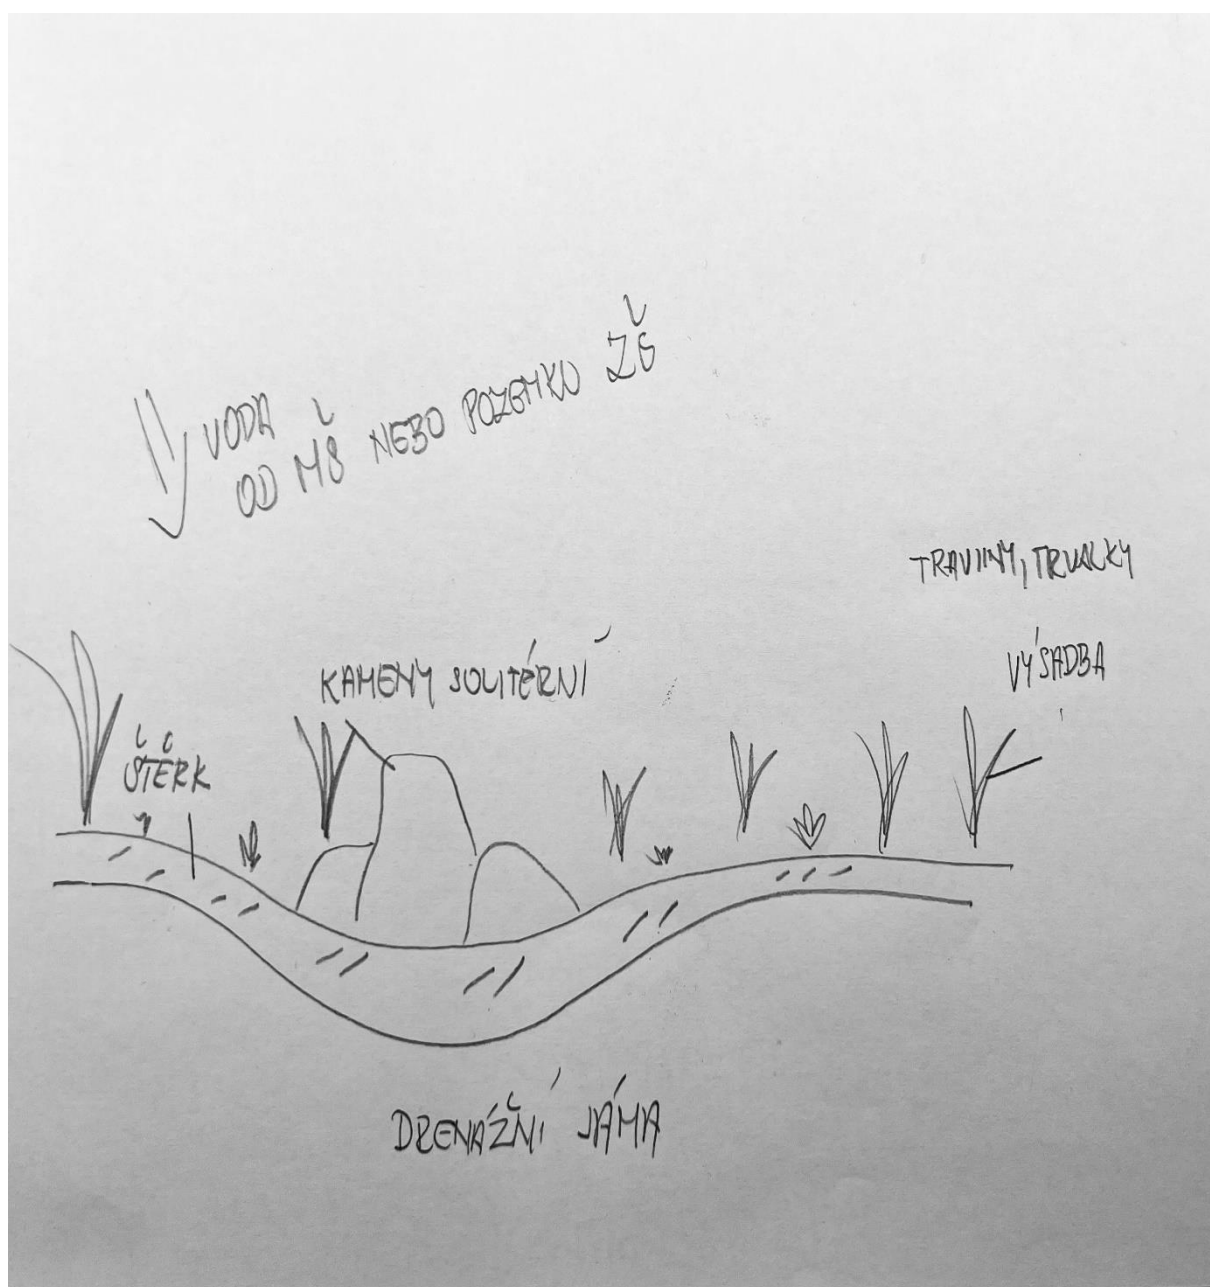 VODA
OD MŠ NEBO POZEMKU ZŠ
TRAVINY, TRVALKY
VÝSADBA
KAMENY SOLITÉRNÍ
ŠTĚRK
DRENÁŽNÍ JÁMA